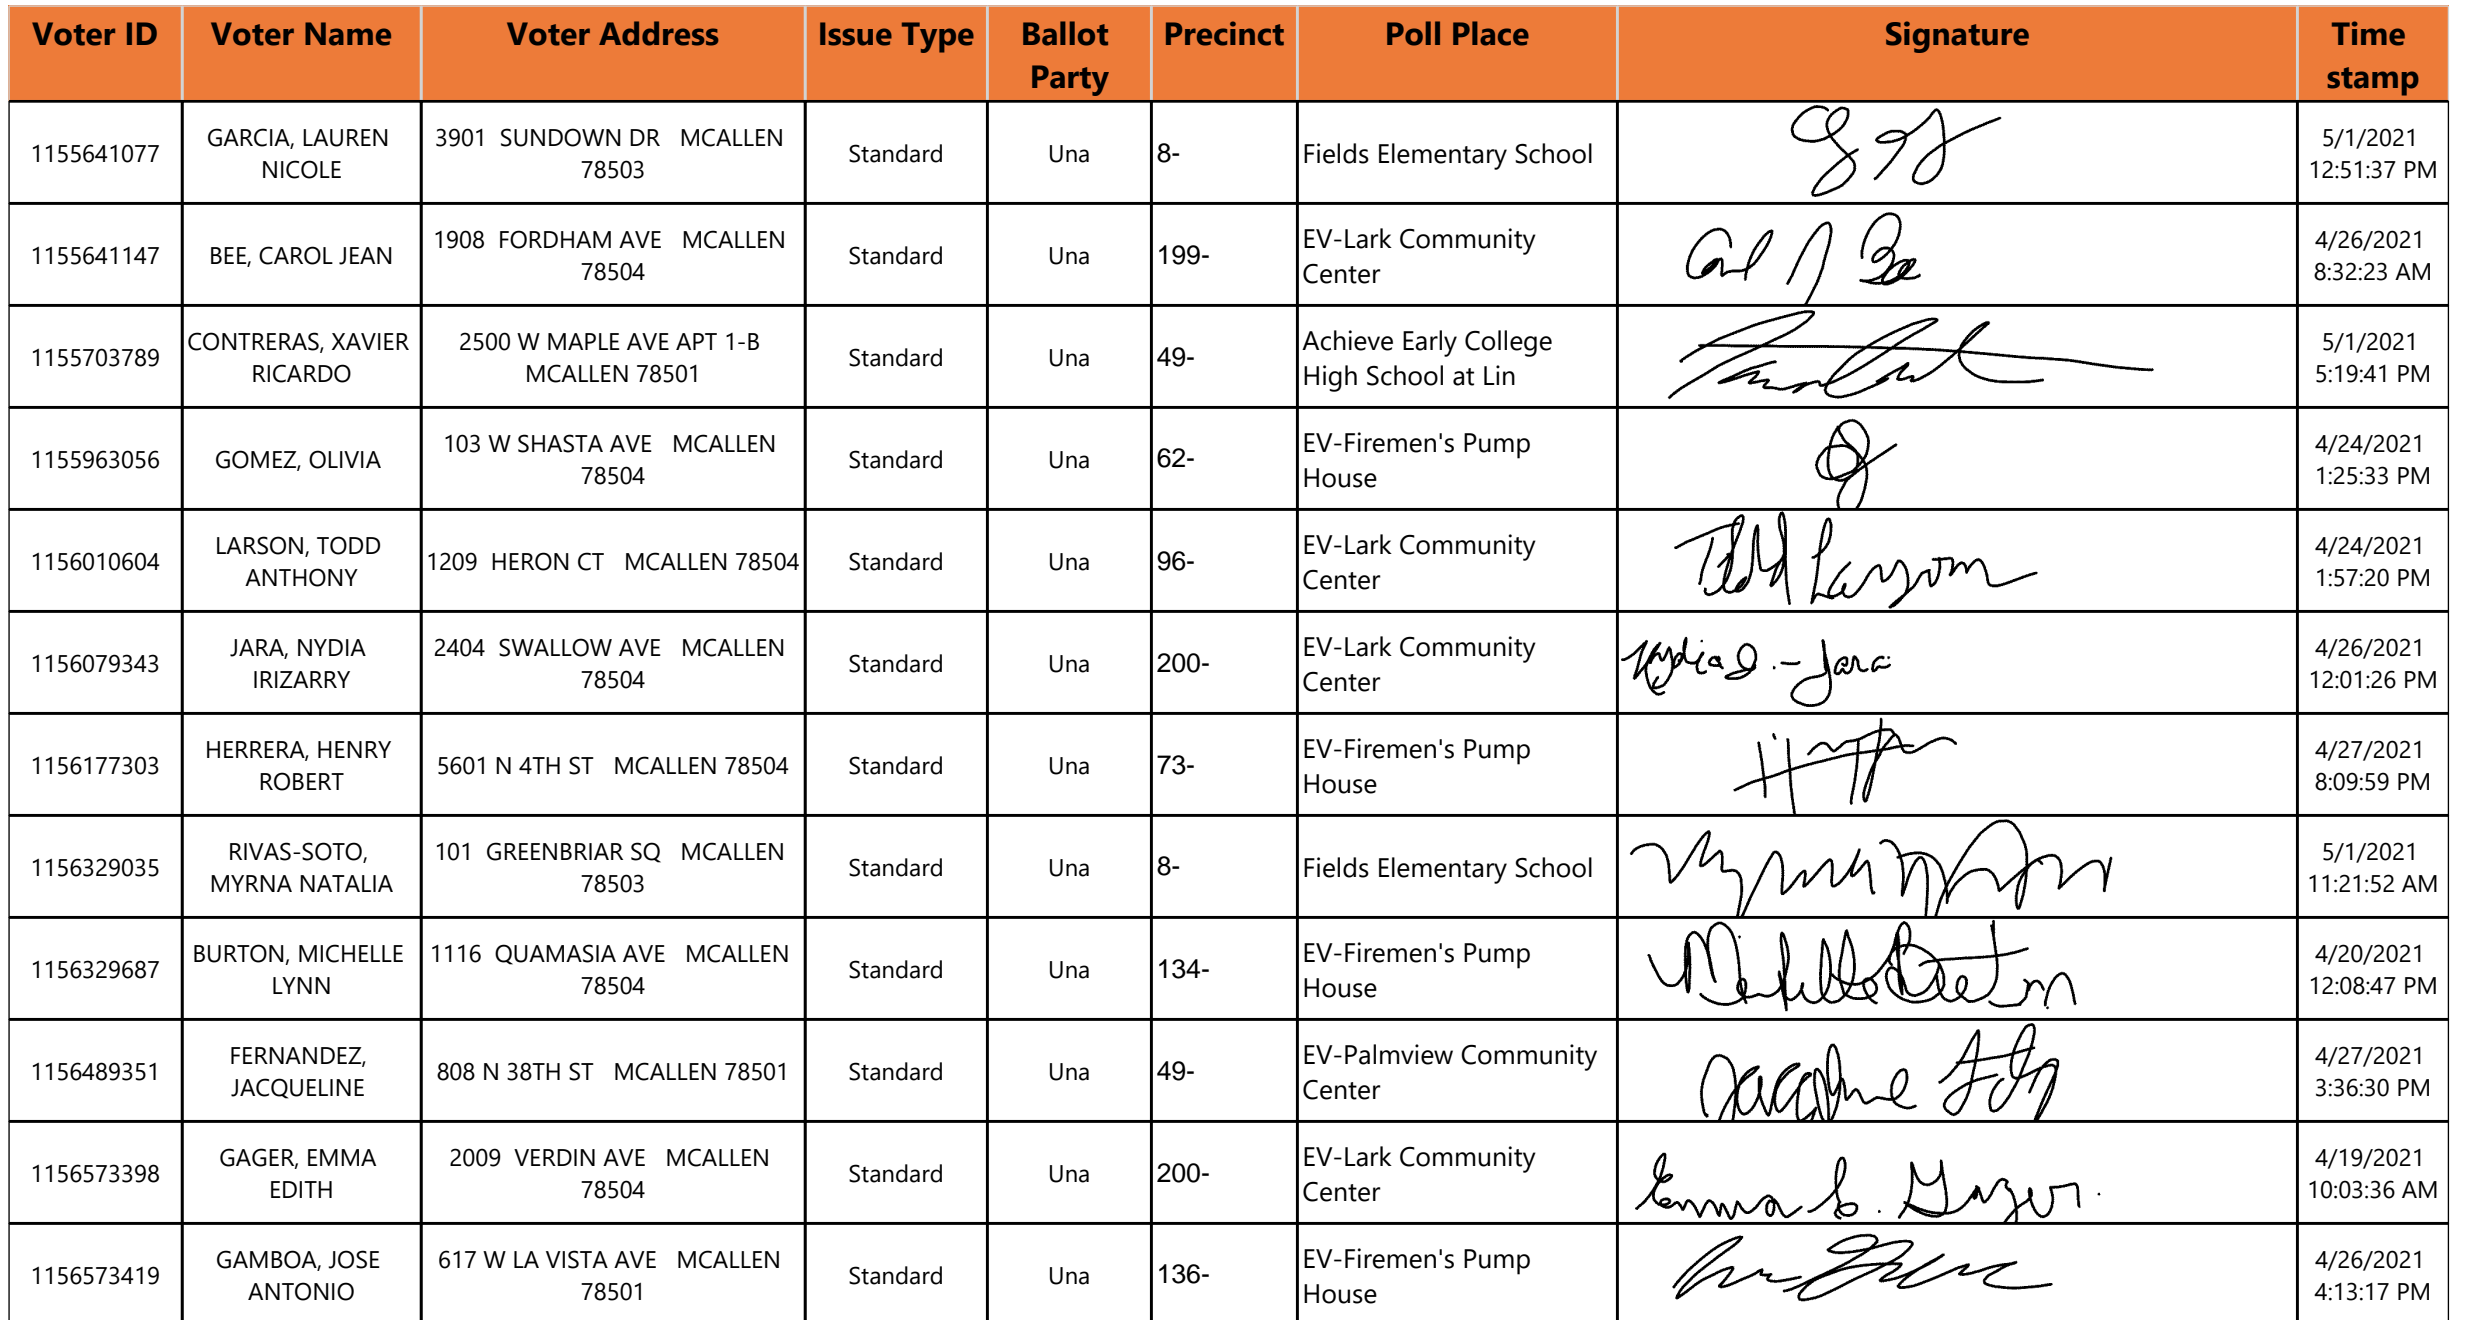 Voter ID Voter Name Voter Address Issue Type Ballot Party Precinct Poll Place Signature Time stamp
1155641077 GARCIA, LAUREN NICOLE 3901 SUNDOWN DR MCALLEN 78503 Standard Una 8- Fields Elementary School 5/1/2021 12:51:37 PM
1155641147 BEE, CAROL JEAN 1908 FORDHAM AVE MCALLEN 78504 Standard Una 199- EV-Lark Community Center Carol J Bee 4/26/2021 8:32:23 AM
1155703789 CONTRERAS, XAVIER RICARDO 2500 W MAPLE AVE APT 1-B MCALLEN 78501 Standard Una 49- Achieve Early College High School at Lin 5/1/2021 5:19:41 PM
1155963056 GOMEZ, OLIVIA 103 W SHASTA AVE MCALLEN 78504 Standard Una 62- EV-Firemen's Pump House 4/24/2021 1:25:33 PM
1156010604 LARSON, TODD ANTHONY 1209 HERON CT MCALLEN 78504 Standard Una 96- EV-Lark Community Center Todd Larson 4/24/2021 1:57:20 PM
1156079343 JARA, NYDIA IRIZARRY 2404 SWALLOW AVE MCALLEN 78504 Standard Una 200- EV-Lark Community Center Nydia I. - Jara 4/26/2021 12:01:26 PM
1156177303 HERRERA, HENRY ROBERT 5601 N 4TH ST MCALLEN 78504 Standard Una 73- EV-Firemen's Pump House 4/27/2021 8:09:59 PM
1156329035 RIVAS-SOTO, MYRNA NATALIA 101 GREENBRIAR SQ MCALLEN 78503 Standard Una 8- Fields Elementary School 5/1/2021 11:21:52 AM
1156329687 BURTON, MICHELLE LYNN 1116 QUAMASIA AVE MCALLEN 78504 Standard Una 134- EV-Firemen's Pump House Michelle Burton 4/20/2021 12:08:47 PM
1156489351 FERNANDEZ, JACQUELINE 808 N 38TH ST MCALLEN 78501 Standard Una 49- EV-Palmview Community Center 4/27/2021 3:36:30 PM
1156573398 GAGER, EMMA EDITH 2009 VERDIN AVE MCALLEN 78504 Standard Una 200- EV-Lark Community Center Emma E. Gager. 4/19/2021 10:03:36 AM
1156573419 GAMBOA, JOSE ANTONIO 617 W LA VISTA AVE MCALLEN 78501 Standard Una 136- EV-Firemen's Pump House 4/26/2021 4:13:17 PM